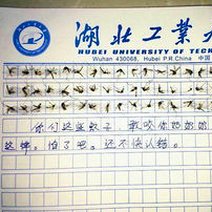 湖北工業
HUBEI UNIVERSITY OF TEC
Wuhan 430068, Hubei P.R.China 中国
你们这些蚊子 敢咬你奶奶
这样。怕了吧。还不快认错。